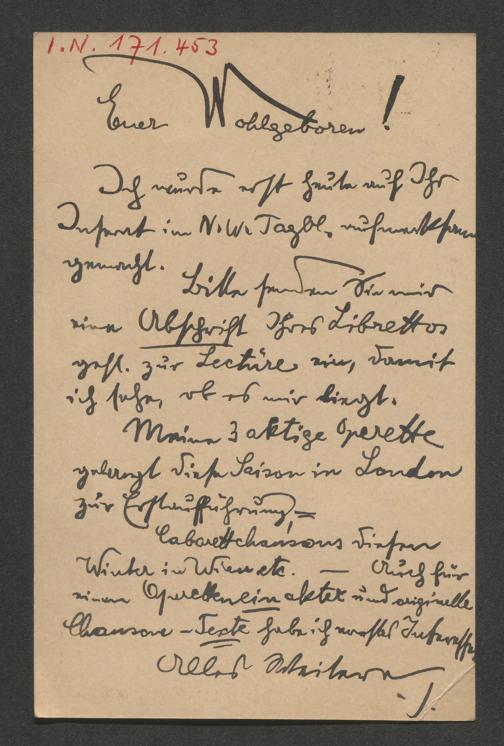 I.N. 171.453
Euer Wohlgeboren!
Ich wurde erst heute auf Ihr
Inserat im N. W. Tagbl. aufmerksam
gemacht.
Bitte senden Sie mir
eine Abschrift Ihres Librettos
gefl. zur Lectüre ein, damit
ich sehe, ob es mir liegt.
Meine 3 aktige Operette
gelangt diese Saison in London
zur Erstaufführung,=
Cabaretchansons diesen
Winter in Wien etc. — Auch für
einen Operetteneinakter und originelle
Chanson-Texte habe ich Interesse
Alles Weitere